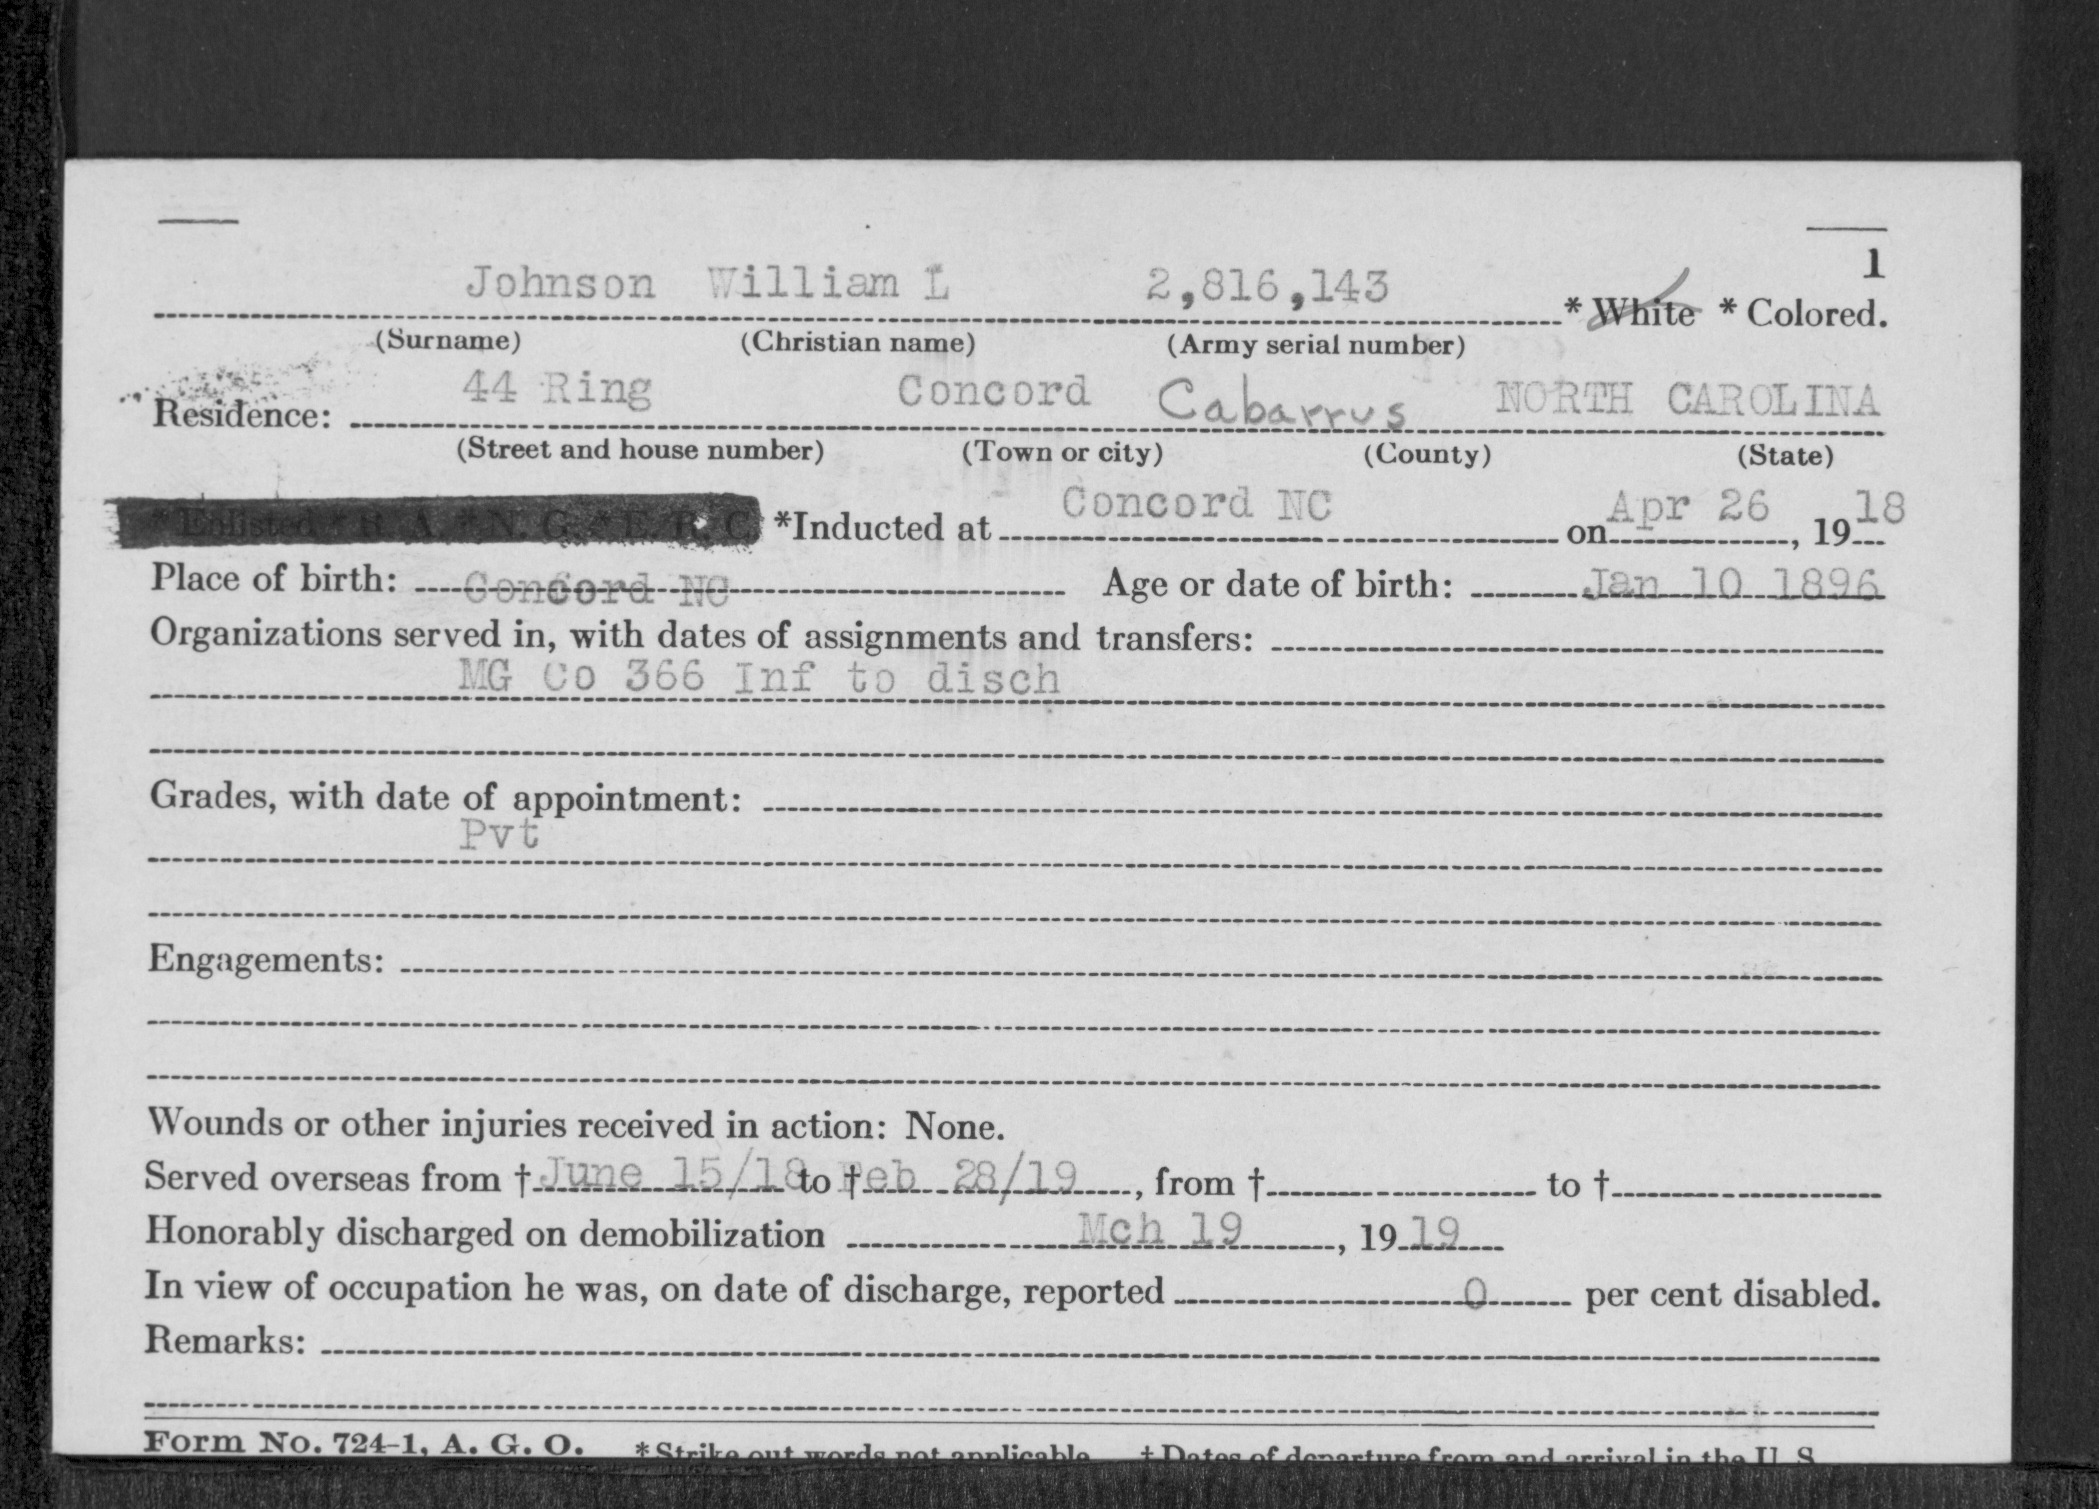 1
Johnson William L 2,816,143 * White * Colored.
(Surname) (Christian name) (Army serial number)
Residence: 44 Ring Concord Cabarrus NORTH CAROLINA
(Street and house number) (Town or city) (County) (State)
* Enlisted * R. A. * N. G. * E. R. C. *Inducted at Concord NC on Apr 26, 1918
Place of birth: Concord NC Age or date of birth: Jan 10 1896
Organizations served in, with dates of assignments and transfers:
MG Co 366 Inf to disch
Grades, with date of appointment:
Pvt
Engagements:
Wounds or other injuries received in action: None.
Served overseas from † June 15/18 to † Feb 28/19, from † to †
Honorably discharged on demobilization Mch 19, 1919
In view of occupation he was, on date of discharge, reported 0 per cent disabled.
Remarks:
Form No. 724-1, A. G. O. * Strike out words not applicable † Dates of departure from and arrival in the U. S.